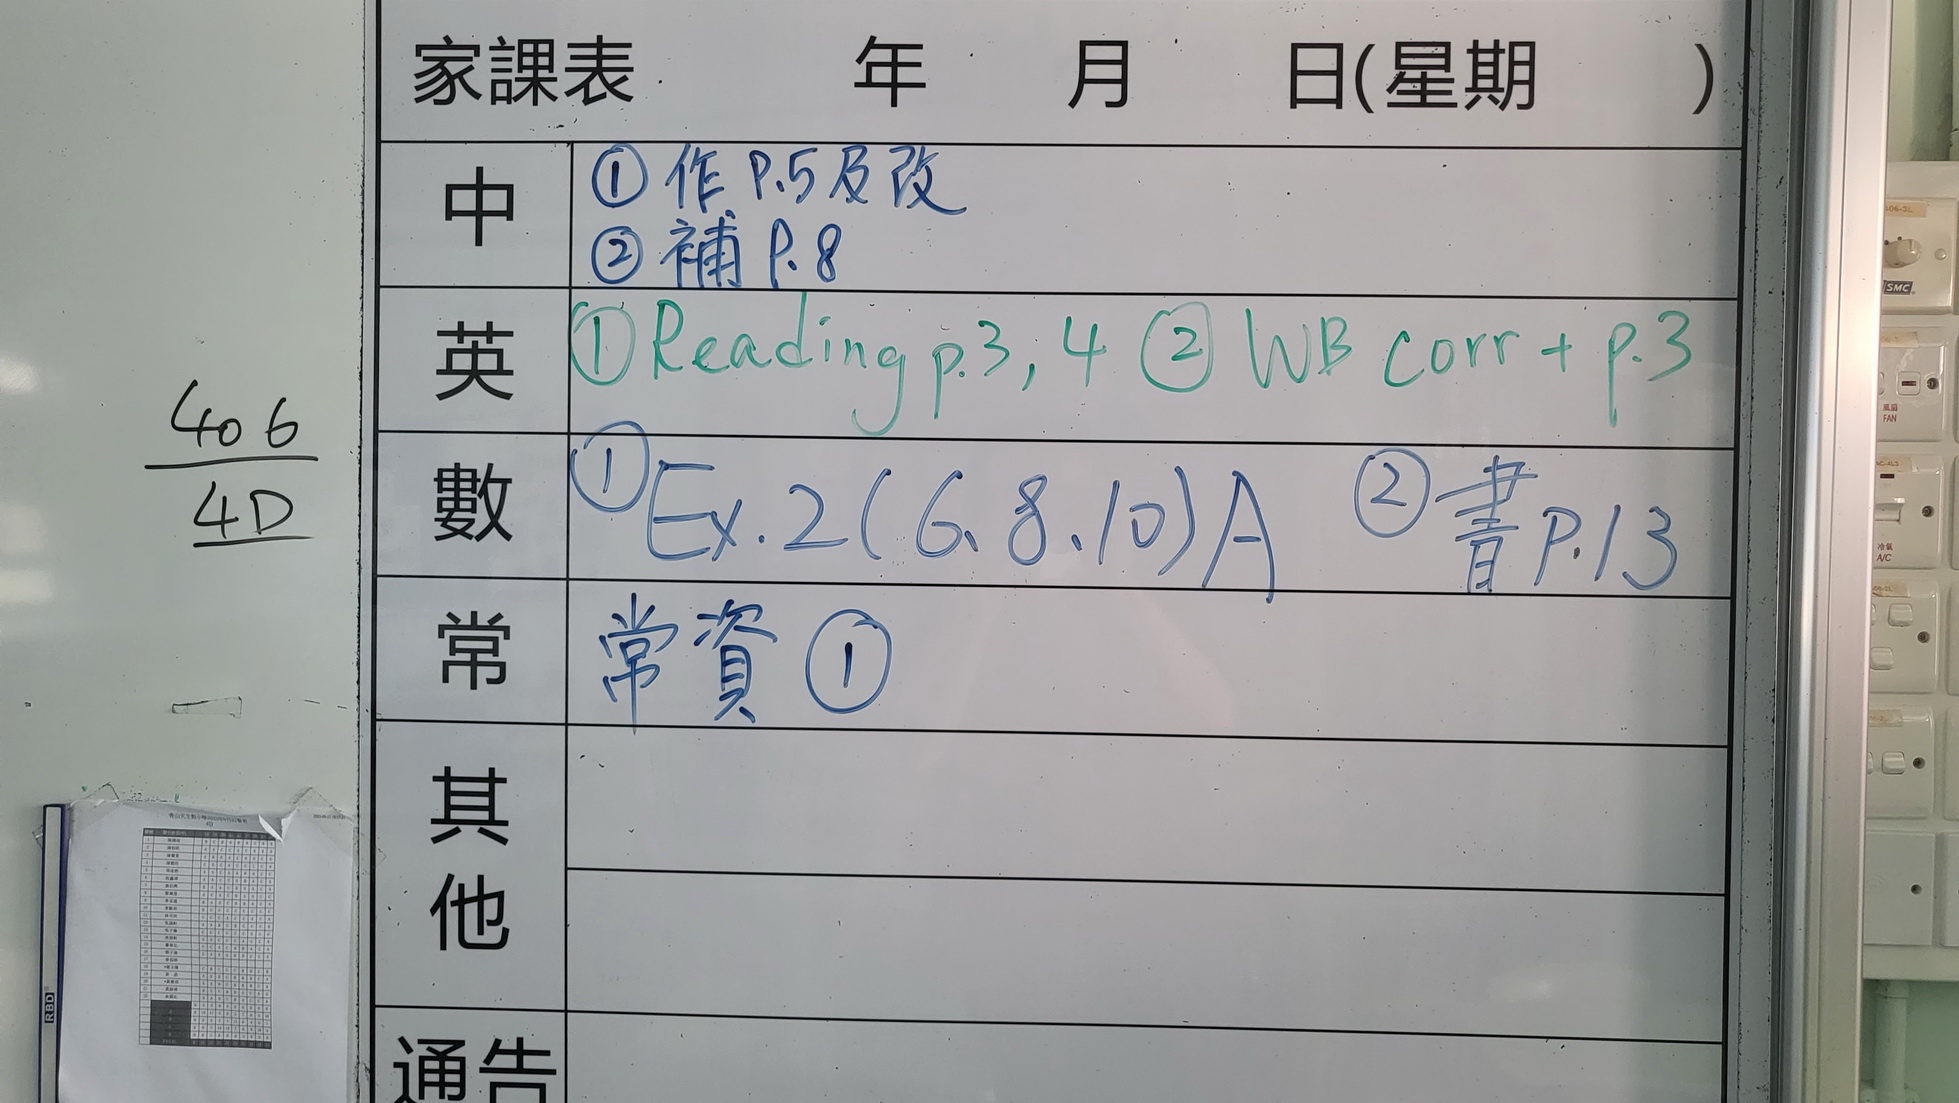 家課表 年 月 日(星期 )
中
① 作 P.5及改
② 補 P.8
英
① Reading p.3, 4 ② WB corr + p.3
數
① Ex.2(6、8、10)A ② 書 P.13
常
常資 ①
其他
通告
406
4D
RBD
SMC
風扇
FAN
冷氣
A/C